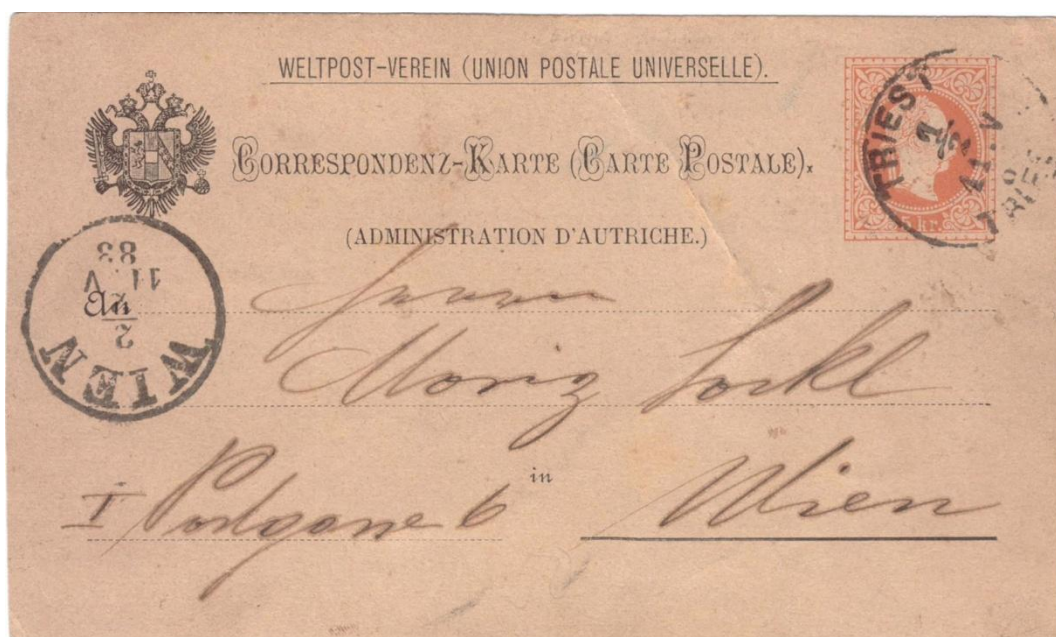 WELTPOST-VEREIN (UNION POSTALE UNIVERSELLE).
CORRESPONDENZ-KARTE (CARTE POSTALE).
(ADMINISTRATION D'AUTRICHE.)
TRIEST
11. V
5 kr.
WIEN
2
11. V
83
An
Herrn
Moriz
in
I Postgasse 6 Wien